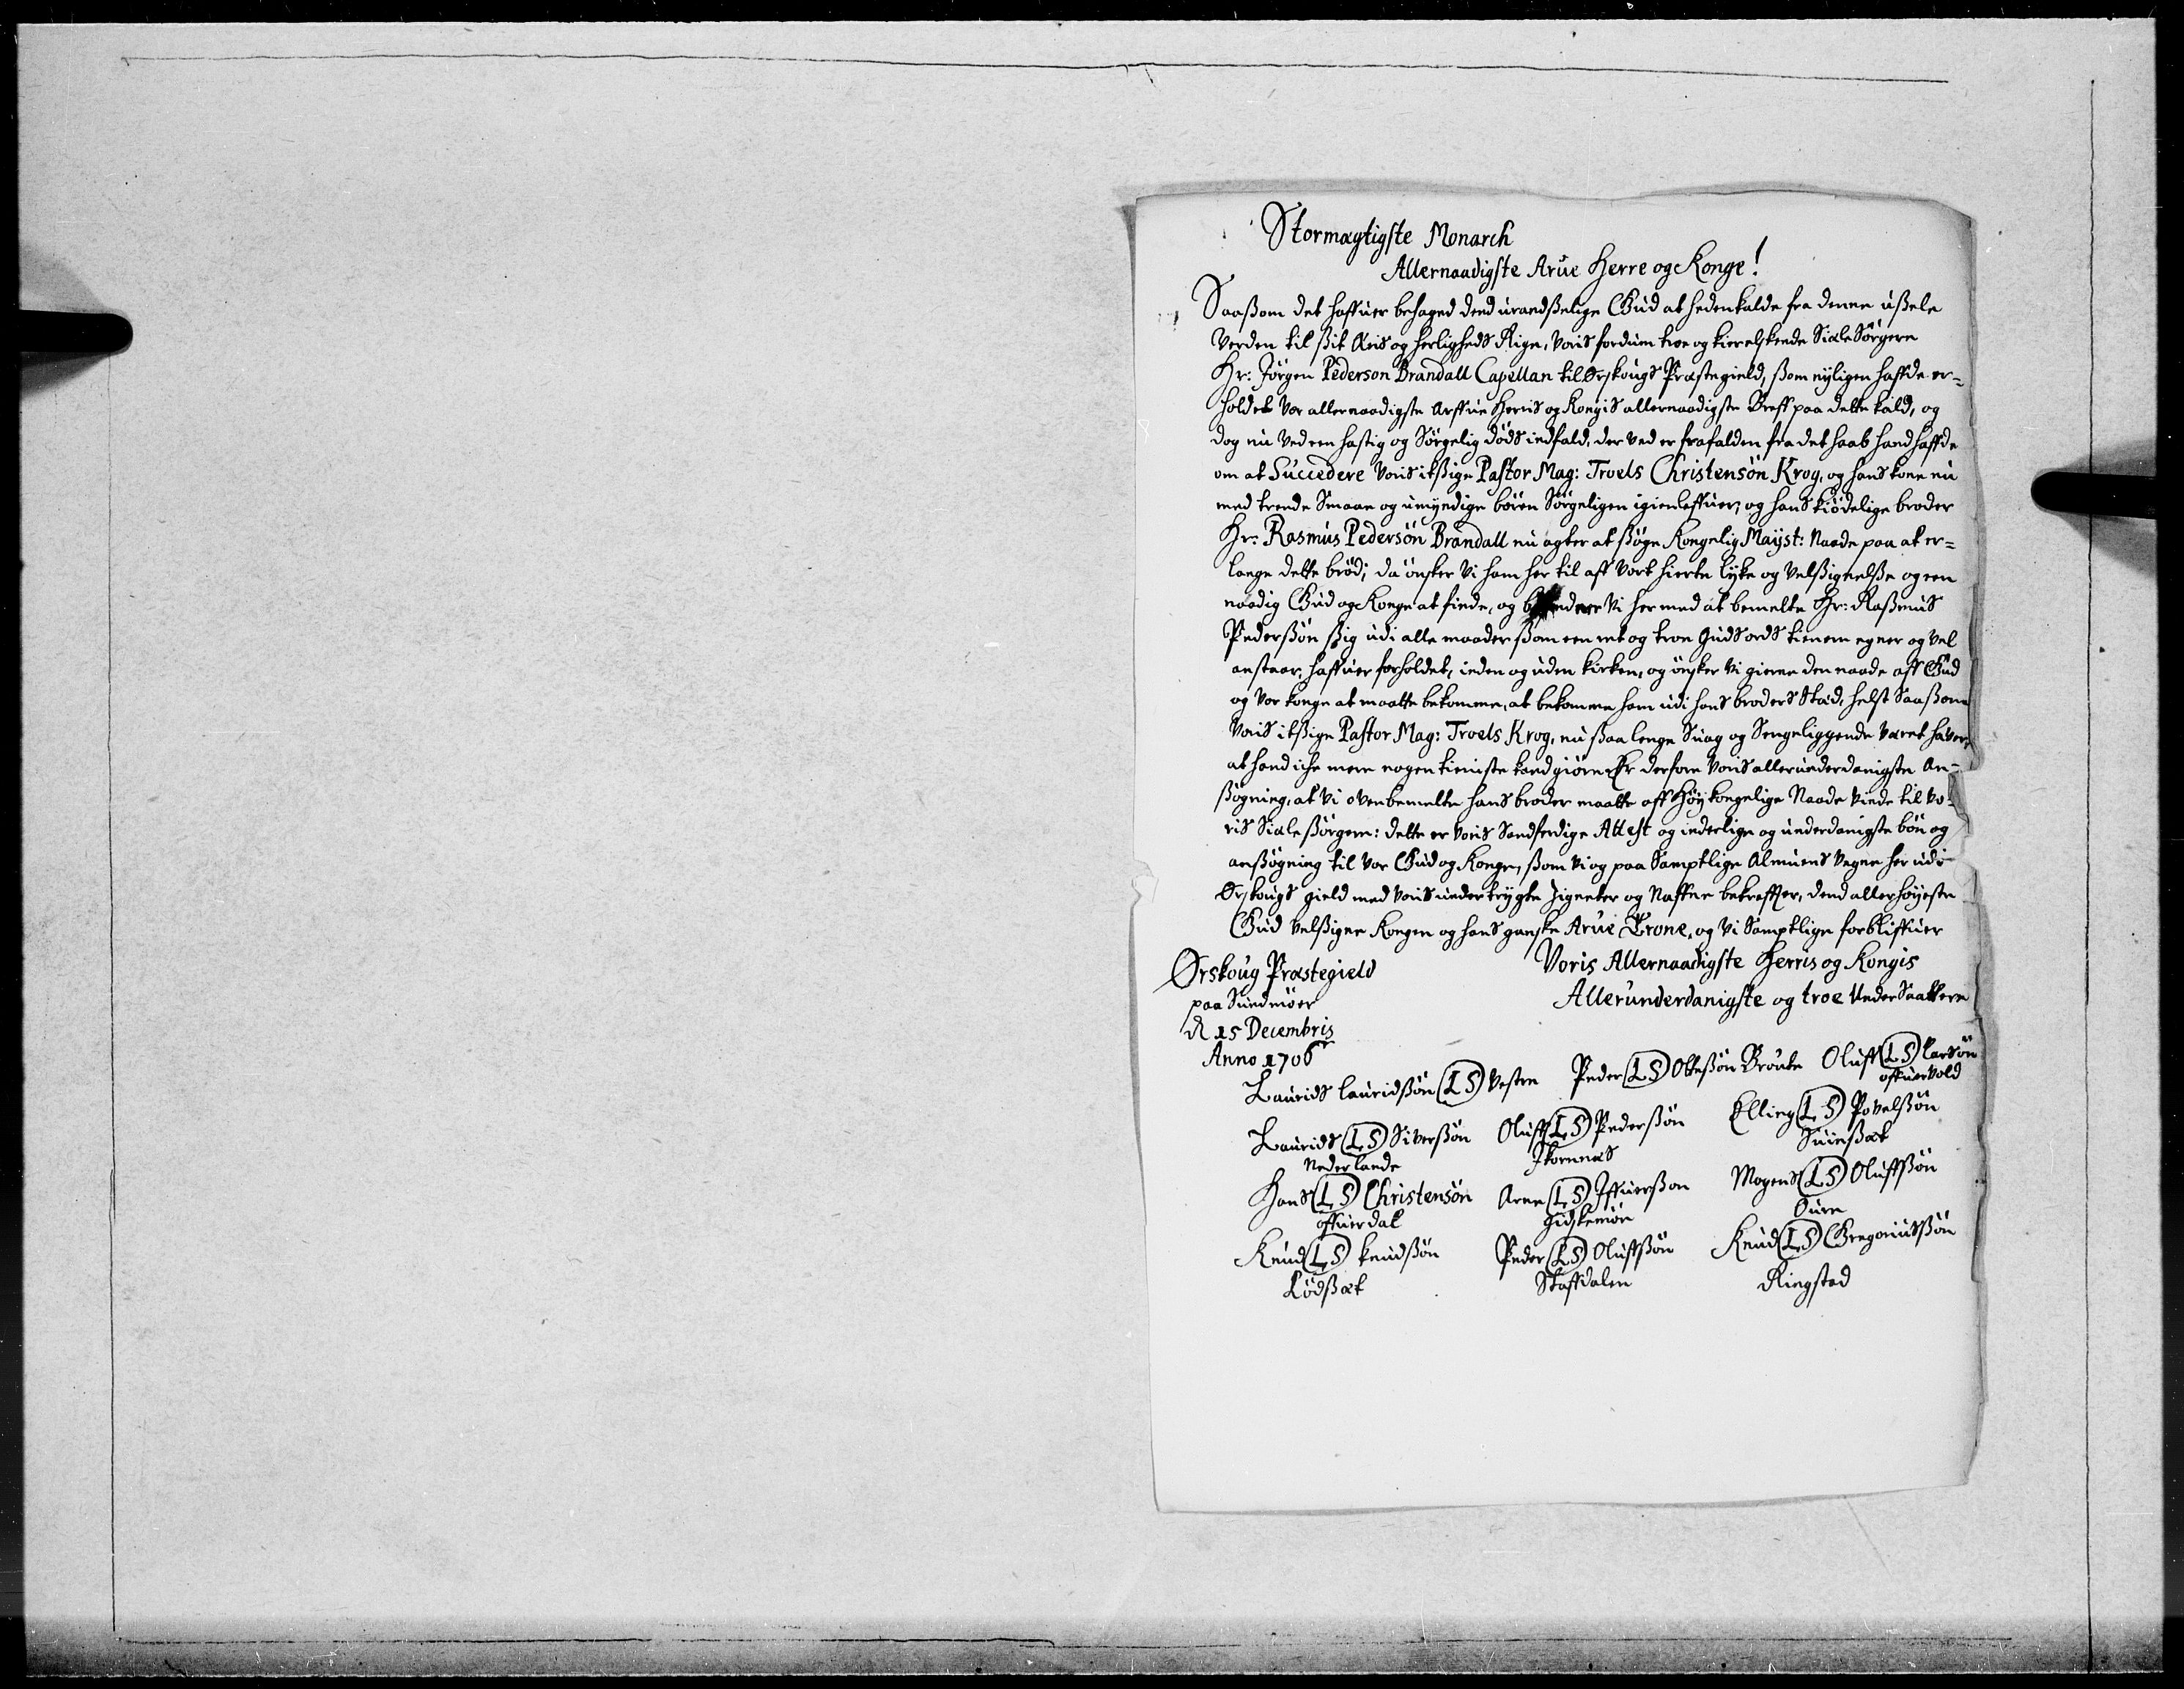 Stormægtigste Monarch
Allernaadigste Arue Herre og Konge!
Saaßom det haffuer behaged dend urandßelige Gud at hedenkalde fra denne ußele
Verden til ßit Æris og herligheds Rige, voris fordum troe og kierelskende Siæle Sørgere
Hr: Jørgen Pederson Brandall Capellan til Ørskougs Præstegield, ßom nyligen haffde er=
holdet vor allernaadigste Arffue Herris og Kongis allernaadigste Breff paa dette kald, og
dog nu ved een hastig og Sørgelig døds indfald, der ved er frafalden fra det haab hand haffde
om at Succedere Voris itßige Pastor Mag: Troels Christensøn Krog, og hans kone nu
med trende Smaae og umyndige børen Sørgeligen igienleffuer, og hans kiødelige broder
Hr: Rasmus Pedersøn Brandall nu agter at ßøge Kongelig Mayst: Naade paa at er=
lange dette brød; da ønsker vi ham her til aff vort hierte lyke og velßignelße og een
naadig Gud og Konge at finde, og vi her med at bemelte Hr: Raßmus
Pederßøn ßig udi alle maader ßom een ret og troe Guds ords tienere egner og vel
anstaar, haffuer forholdet, inden og uden kirken, og ønsker vi gierne den naade aff Gud
og vor konge at maatte bekomme, at bekomme ham udi hans broders Stæd, helst Saaßom
Voris itßige Pastor Mag: Troels Krog, nu ßaa lenge Suag og Sengeliggende været haver,
at hand iche mere nogen tieniste kand giøre Er derfore Voris allerunderdanigste An-
ßøgning, at vi ovenbemelte hans broder maatte aff Høy kongelige Naade vinde til Vo-
ris Siæleßørgere: dette er Voris Sandferdige Attest og inderlige og underdanigste bøn og
anßøgning til Vor Gud og Konge, ßom vi og paa Samptlige Almuens Vegne her udi
Ørskougs gield med Voris undertrygte Zigneter og Naffne bekreffter, dend allerhøyeste
Gud velßigne Kongen og hans ganske Arue Trone, og vi Samptlige forbliffuer
Ørskoug Præstegield
Voris Allernaadigste Herris og Kongis
paa Sundmøer
Allerunderdanigste og troe Under Saattere
d 15 Decembris
Anno 1706
Laurids Lauridßøn (LS) Vestre Peder (LS) Olteßøn Broute Oluff (LS) Larsøn
offuervold
Laurids (LS) Siverßøn Oluff (LS) Pederßøn Elling (LS) Povelßøn
Nederlande Ikornnæs Suinßæt
Hans (LS) Christensøn Arne (LS) Iffuerßon Mogens (LS) Oluffßøn
offuerdal Gidskemøe Oure
Knud (LS) Knudßøn Peder (LS) Oluffßøn Knud (LS) Gregoriusßøn
Lødßæt Staffdalen Ringstad